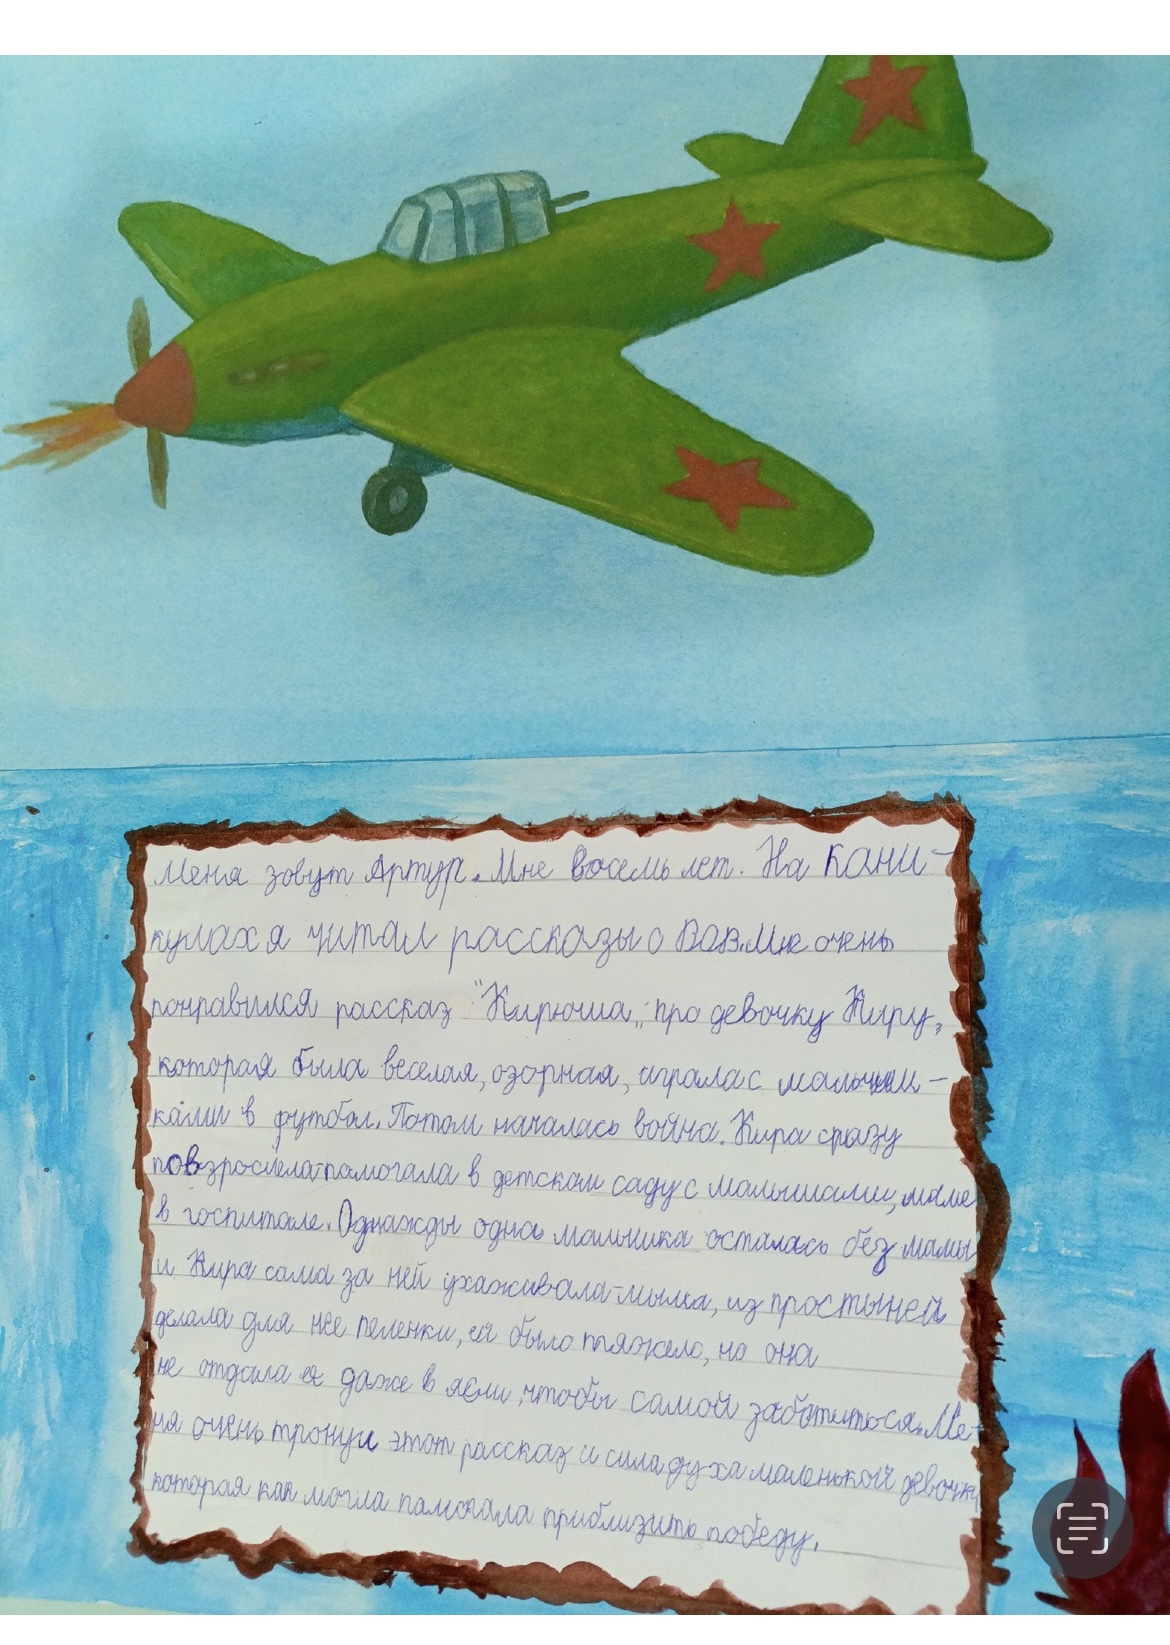 Меня зовут Артур. Мне восемь лет. На кани-
кулах я читал рассказы о ВОВ. Мне очень
понравился рассказ "Кирюша", про девочку Киру,
которая была веселая, озорная, играла с мальчи-
ками в футбол. Потом началась война. Кира сразу
повзрослела-помогала в детском саду с малышами, маме
в госпитале. Однажды одна малышка осталась без мамы
и Кира сама за ней ухаживала-мыла, из простыней
делала для нее пеленки, ей было тяжело, но она
не отдала ее даже в ясли, чтобы самой заботиться. Ме-
ня очень тронул этот рассказ и сила духа маленькой девочки
которая как могла помогала приблизить победу.